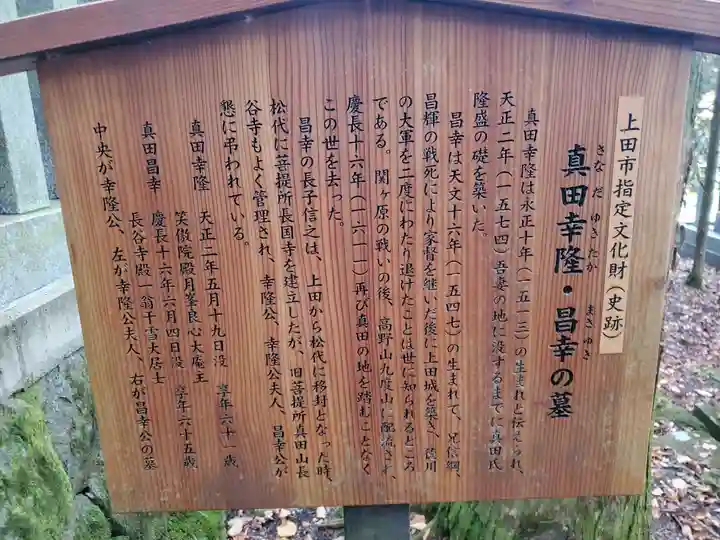 上田市指定文化財(史跡)
真田幸隆・昌幸の墓
さなだ ゆきたか まさゆき
真田幸隆は永正十年(一五一三)の生まれと伝えられ、
天正二年(一五七四)吾妻の地に没するまでに真田氏
隆盛の礎を築いた。
昌幸は天文十六年(一五四七)の生まれで、兄信綱、
昌輝の戦死により家督を継いだ後に上田城を築き、徳川
の大軍を二度にわたり退けたことは世に知られるところ
である。関ヶ原の戦いの後、高野山九度山に配流され、
慶長十六年(一六一一)再び真田の地を踏むことなく
この世を去った。
昌幸の長子信之は、上田から松代に移封となった時、
松代に菩提所長国寺を建立したが、旧菩提所真田山長
谷寺もよく管理され、幸隆公、幸隆公夫人、昌幸公が
懇に弔われている。
真田幸隆 天正二年五月十九日没 享年六十一歳
笑傲院殿月峯良心大庵主
真田昌幸 慶長十六年六月四日没 享年六十五歳
長谷寺殿一翁干雪大居士
中央が幸隆公、左が幸隆公夫人、右が昌幸公の墓